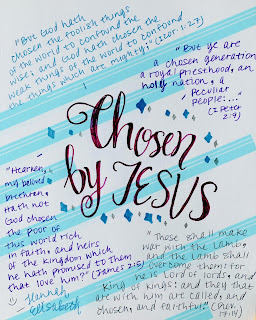 "But God hath
chosen the foolish things
of the world to confound the
wise; and God hath chosen the
weak things of the world to confound
the things which are mighty;" (1 Cor. 1:27)
"But ye are
a chosen generation,
a royal priesthood, an
holy nation, a
peculiar
people:..."
(1 Peter
2:9)
Chosen
by JESUS
"Hearken,
my beloved
brethren,
Hath not
God chosen
the poor of
this world rich
in faith, and heirs
of the kingdom which
he hath promised to them
that love him?" (James 2:5)
"These shall make
war with the Lamb,
and the Lamb shall
overcome them: for
he is Lord of lords, and
King of kings: and they that
are with him are called, and
chosen, and faithful." (Rev.
17:14)
Hannah
Elisabeth